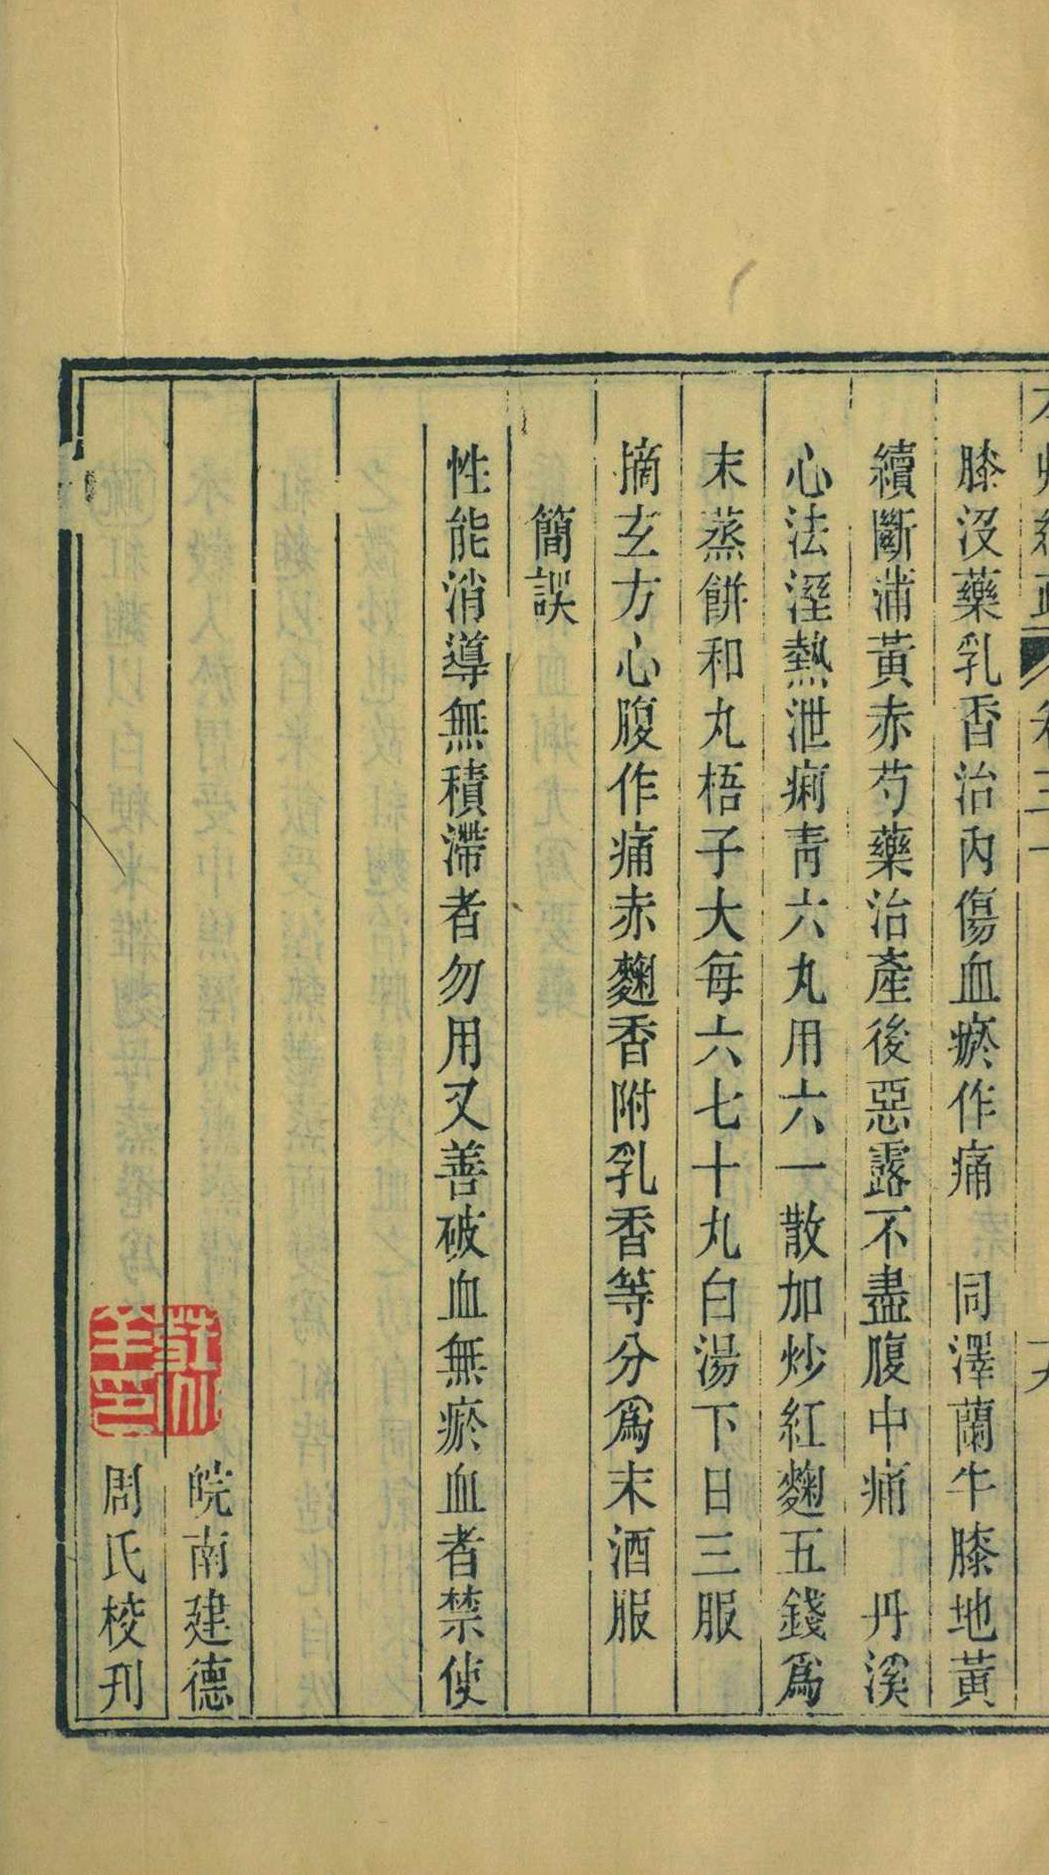 膝沒藥乳香治內傷血瘀作痛　同澤蘭牛膝地黃
續斷蒲黃赤芍藥治產後惡露不盡腹中痛　丹溪
心法溼熱泄痢青六丸用六一散加炒紅麴五錢爲
末蒸餅和丸梧子大每六七十丸白湯下日三服
摘玄方心腹作痛赤麴香附乳香等分爲末酒服
簡誤
性能消導無積滯者勿用又善破血無瘀血者禁使
皖南建德
周氏校刊